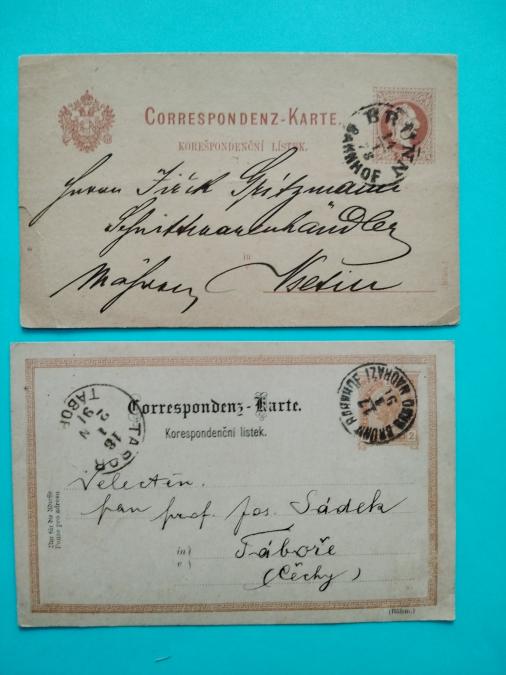 CORRESPONDENZ-KARTE.
KOREŠPONDENČNÍ LÍSTEK.
BRÜNN
BAHNHOF
78
Herrn Gritzmann
Schnittwarenhändler
in
Mähren Vsetin
Correspondenz-Karte.
Korespondenční lístek.
TABOR
TÁBOR
2
Velectěn.
pan prof. Jos. Sádek
in
v
Táboře
(Čechy)
Nur für die Adresse
Pouze pro adresu
(Böhm.)